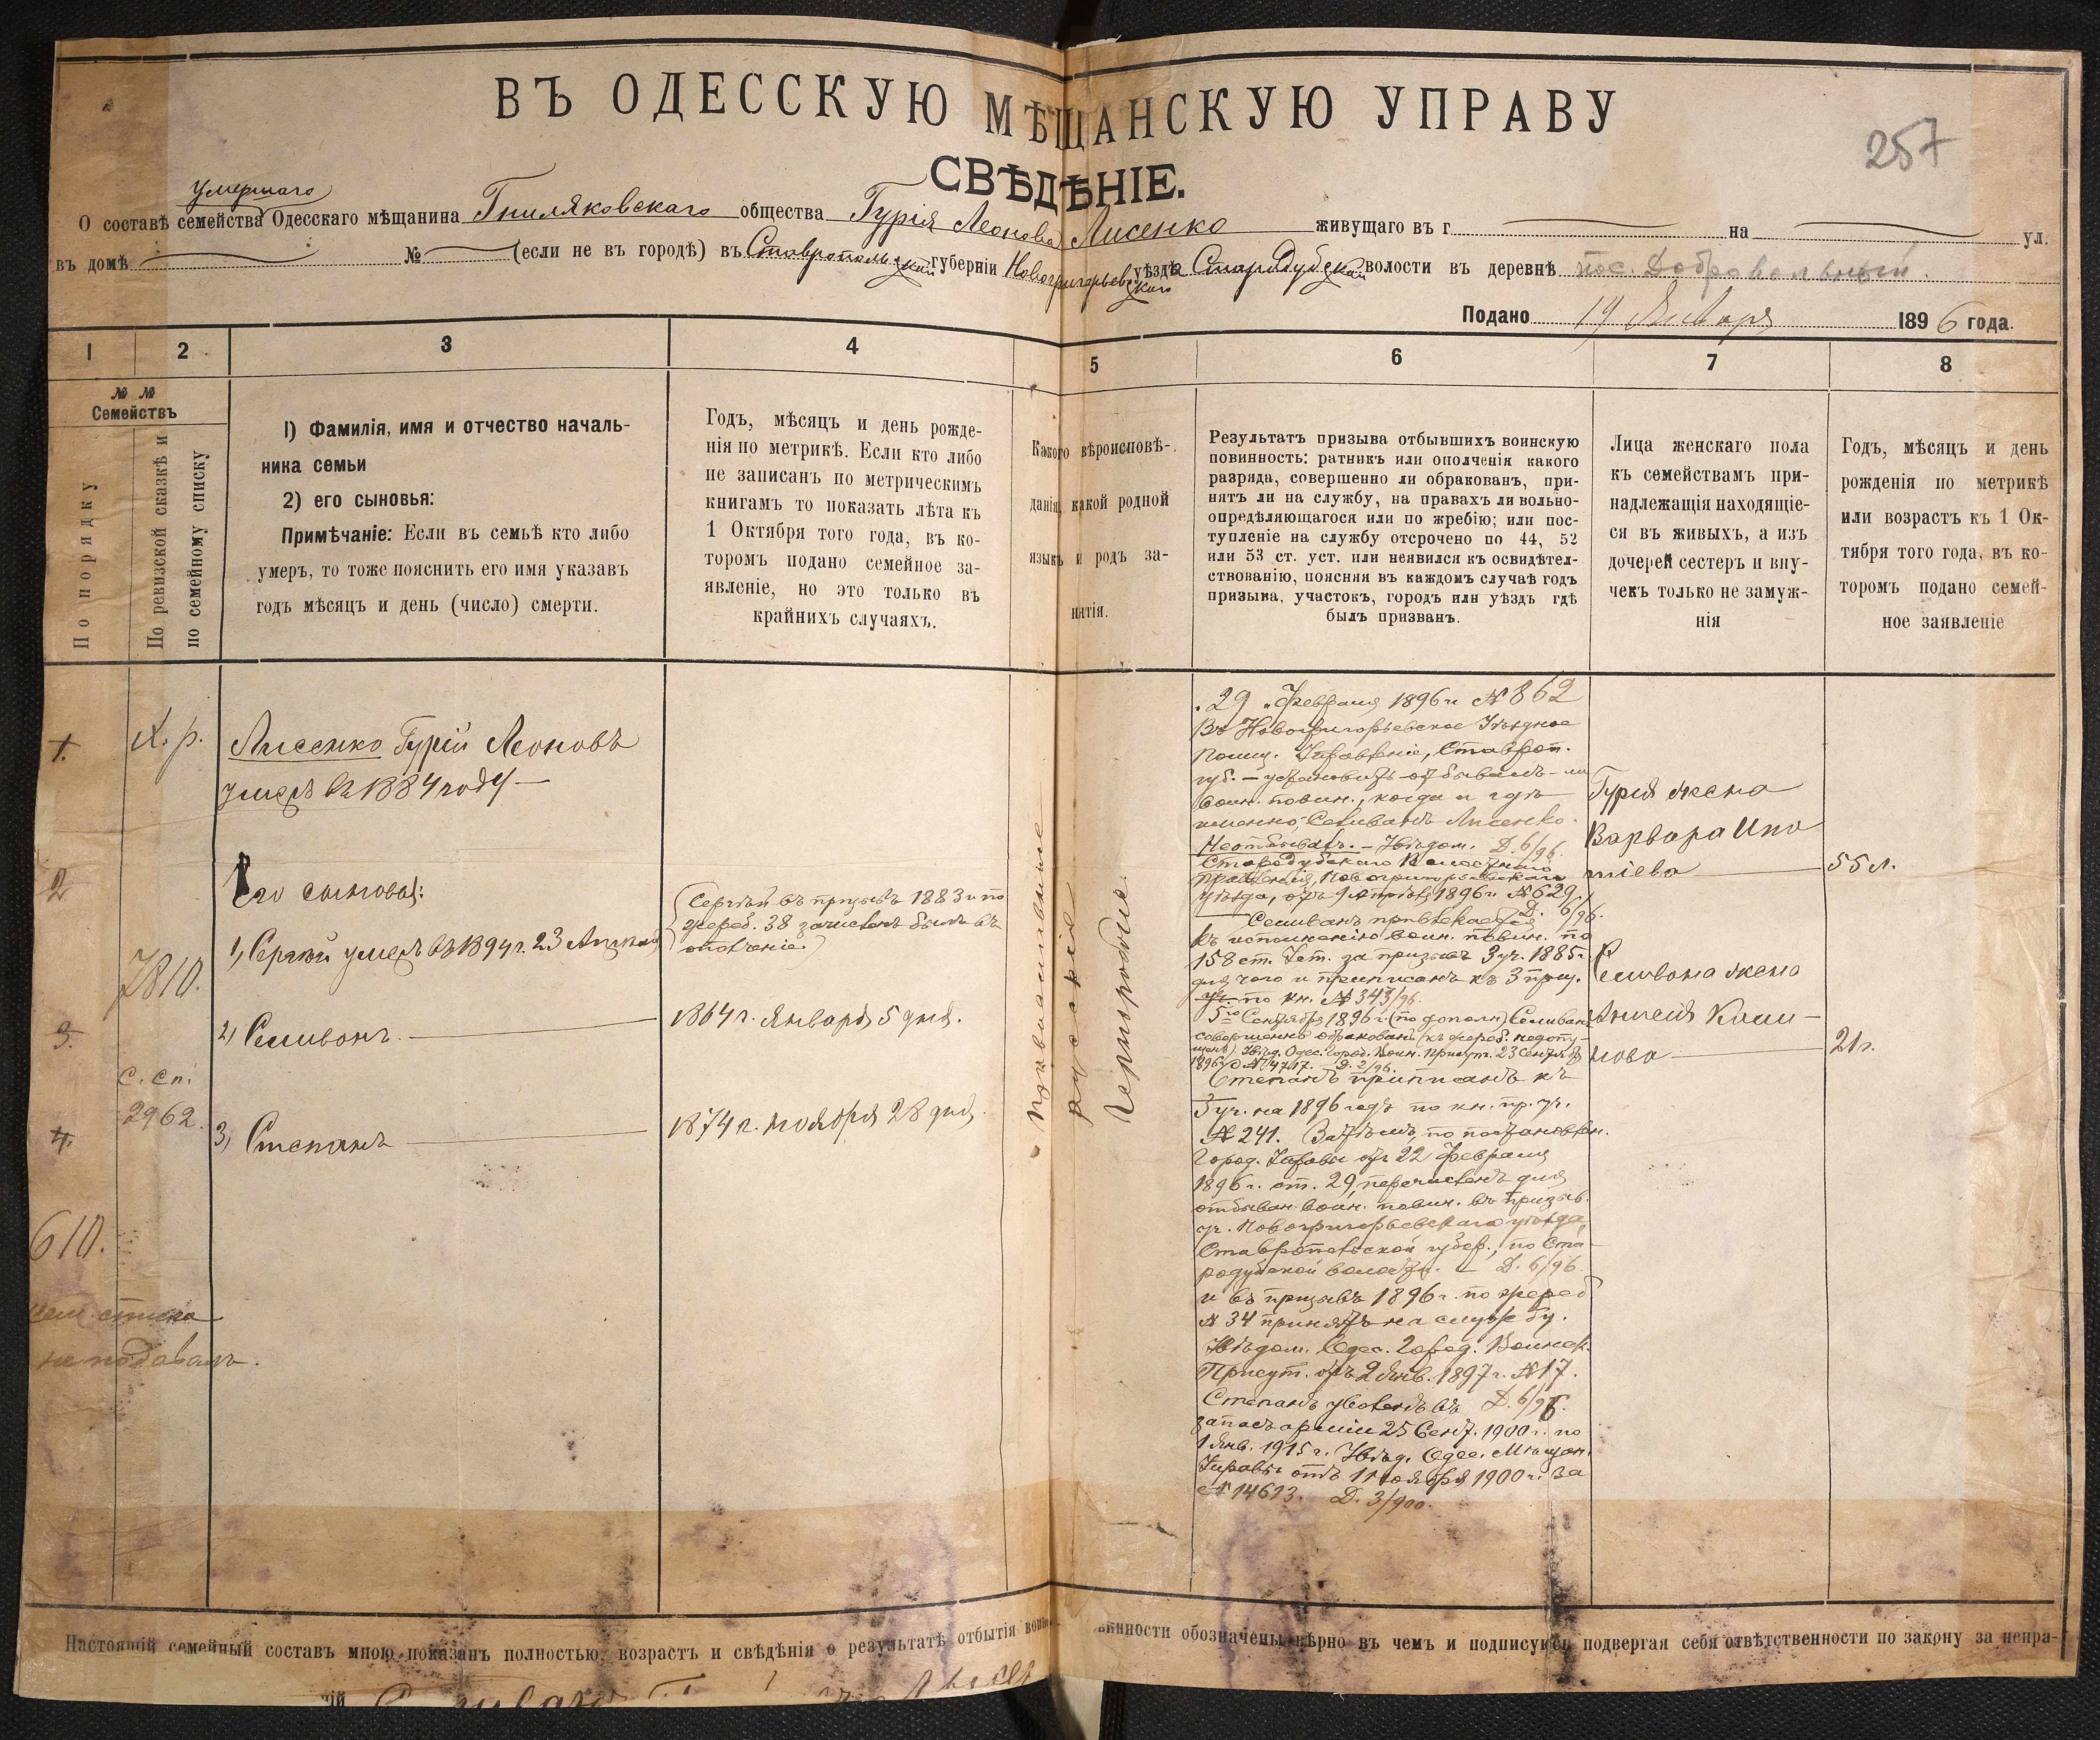 ВЪ ОДЕССКУЮ МѢЩАНСКУЮ УПРАВУ
257
СВѢДѢНІЕ.
умершаго
О составѣ семейства Одесскаго мѣщанина Гниляковскаго общества Гурія Леонова Лисенко живущаго въ г. на ул.
въ домѣ № (если не въ городѣ) въ Ставропольской губерніи Новогригорьевскаго уѣзда Стародубской волости въ деревнѣ пос. Добровольный.
Подано 19 Января 1896 года.
1 2 3 4 5 6 7 8
№ №
Семействъ
По порядку
По ревизской сказкѣ и
по семейному списку
1) Фамилія, имя и отчество началь-
ника семьи
2) его сыновья:
Примѣчаніе: Если въ семьѣ кто либо
умеръ, то тоже пояснить его имя указавъ
годъ мѣсяцъ и день (число) смерти.
Годъ, мѣсяцъ и день рожде-
нія по метрикѣ. Если кто либо
не записанъ по метрическимъ
книгамъ то показать лѣта къ
1 Октября того года, въ ко-
торомъ подано семейное за-
явленіе, но это только въ
крайнихъ случаяхъ.
Какого вѣроисповѣ-
данія, какой родной
языкъ и родъ за-
нятія.
Результатъ призыва отбывшихъ воинскую
повинность: ратникъ или ополченія какого
разряда, совершенно ли обракованъ, при-
нятъ ли на службу, на правахъ ли вольно-
опредѣляющагося или по жребію; или пос-
тупленіе на службу отсрочено по 44, 52
или 53 ст. уст. или неявился къ освидѣтел-
ствованію, поясняя въ каждомъ случаѣ годъ
призыва, участокъ, городъ или уѣздъ гдѣ
былъ призванъ.
Лица женскаго пола
къ семействамъ при-
надлежащія находящіе-
ся въ живыхъ, а изъ
дочерей сестеръ и вну-
чекъ только не замуж-
нія
Годъ, мѣсяцъ и день
рожденія по метрикѣ
или возрастъ къ 1 Ок-
тября того года, въ ко-
торомъ подано семей-
ное заявленіе
1.
2
3.
4.
610.
сем. списка
не подавалъ.
Х. р.
7810.
с. сп.
2962.
Лисенко Гурій Леоновъ
умеръ въ 1884 году
Его сыновья:
1, Сергѣй умеръ въ 1894 г. 23 Апрѣля
2, Селивонъ
3, Степанъ
(Сергѣй въ призывъ 1883 г. по
жереб. 38 зачисленъ былъ въ
ополченіе)
1864 г. Января 5 дня.
1874 г. ноября 28 дня.
Православное
русскій
Чернорабочіе.
29 Февраля 1896 г. № 862
Въ Новогригорьевское Уѣздное
Полиц. Управленіе, Ставроп.
губ. — установить отбывалъ-ли
воин. повин., когда и гдѣ
именно, Селиванъ Лисенко.
Неотбывалъ. — Увѣдом. Д. 6/96.
Стародубскаго Волостного
Правленія, Новогригорьевскаго
уѣзда, отъ 9 Апрѣля 1896 г. № 629,
Д. 6/96.
Селиванъ привлекается
къ исполненію воин. повин. по
158 ст. Уст. за призывъ 3 уч. 1885 г.
для чего и приписанъ къ 3 приз.
уч. по кн. № 343/96.
5го Сентября 1896 г. (по дополн.) Селиванъ
совершенно обракованъ (къ жереб. недопу-
щенъ) Увѣд. Одес. Город. Воин. Присут. 23 Сентября
1896 г. Д. 2/96.
Степанъ приписанъ къ
3 уч. на 1896 годъ по кн. пр. уч.
№ 241. Затѣмъ, по постановлен.
Город. Управы отъ 22 Февраля
1896 г. ст. 29, перечисленъ для
отбыван. воин. повин. въ призыв.
уч. Новогригорьевскаго уѣзда,
Ставропольской губер., по Ста-
родубской волости. — Д. 6/96.
и въ призывъ 1896 г. по жереб.
№ 34 принятъ на службу.
Увѣдом. Одес. Город. Воинск.
Присут. отъ 2 Янв. 1897 г. № 17.
Д. 6/96.
Степанъ уволенъ въ
запасъ арміи 25 Сент. 1900 г. по
1 Янв. 1915 г. Увѣд. Одес. Мѣщан.
Управы отъ 11 ноября 1900 г. за
№ 14613. Д. 3/900.
Гурія жена
Варвара Ипа
тіева
55 л.
Селивона жена
Анисія Кли-
мова
21 г.
Настоящій семейный составъ мною показанъ полностью, возрастъ и свѣдѣнія о результатѣ отбытія воин
винности обозначены вѣрно въ чемъ и подписуюсь подвергая себя отвѣтственности по закону за непра-